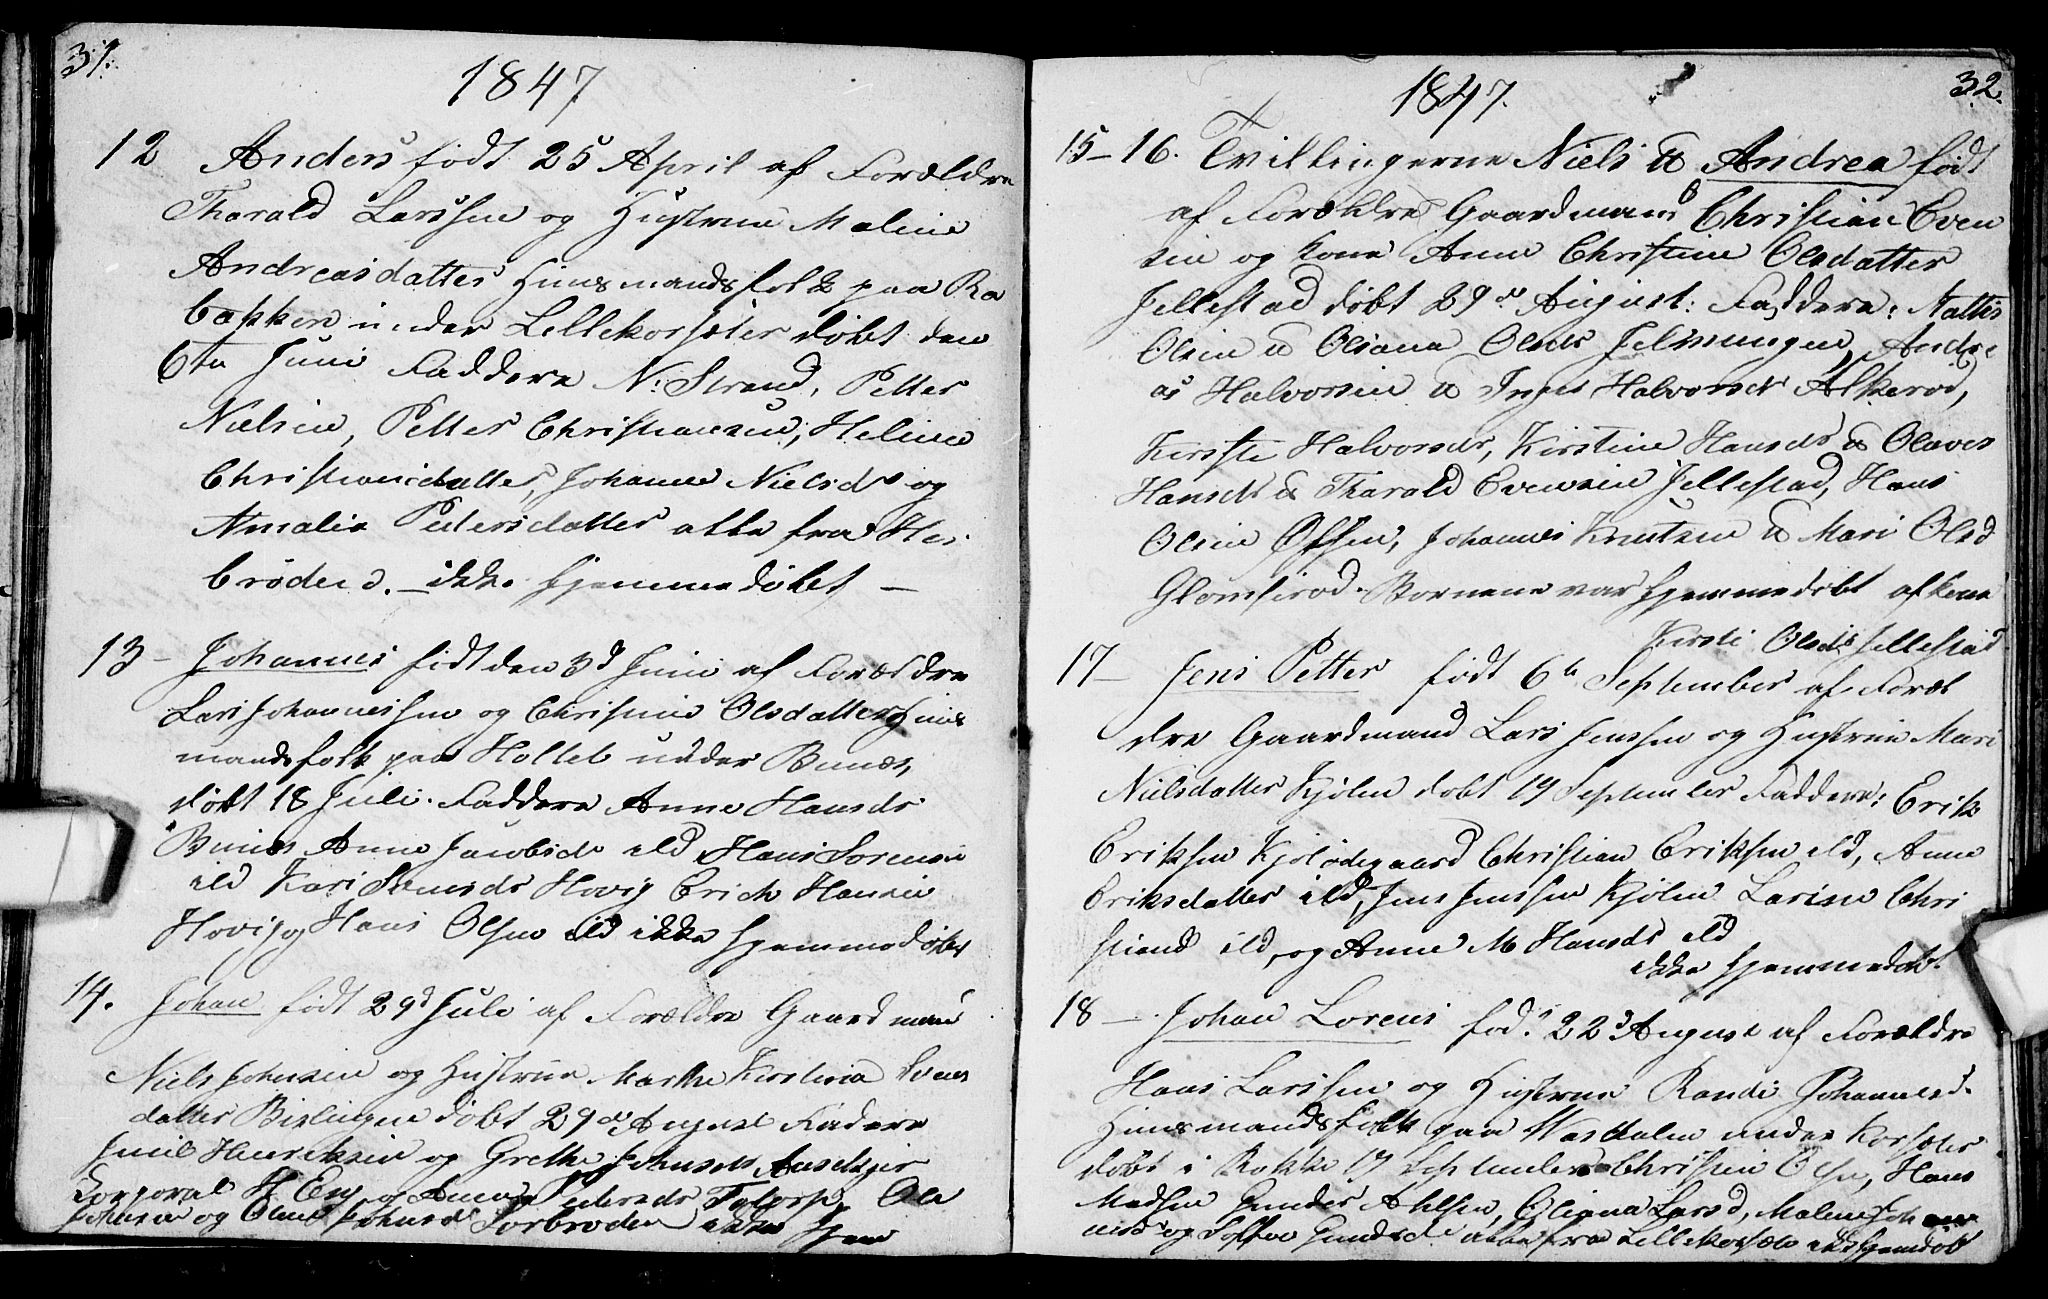 31.
1847
12 Anders født 25 April af Forældre
Tharald Larssen og Hustrue Maline
Andreasdatter Huusmandsfolk paa Ra
bakken under Lillekorsæter døbt den
6te Juni Faddere N: Strand, Petter
Nielsen, Petter Christiansen, Helene
Christiansdatter, Johanne Nielsd og
Amalia Pedersdatter alle fra
brøden. – ikke hjemmedøbt –
13 – Johannes født den 3d Juni af Forældre
Lars Johannessen og Christine Olsdatter Huus
mandsfolk paa Holtet under Bunæs,
døbt 18 Juli. Faddere Anne Hansdr
Bunæs Anne Jacobsdr ild, Hans Sorensen
ild Kari Hovig Erich Hansen
Hovig og Hans Olsen ild ikke hjemmedøbt
14. Johan født 29d Juli af Forældre Gaardmand
Niels Johnsen og Hustrue Marthe Kirstine Svens
datter døbt 29de August Fadere
Emil Henriksen og Grethe Johnsdtr
Corporal og Anne Pedersdr Ole
Johnsen og Johnsdr Sorbroden ikke hjem
32.
1847.
15 – 16. Tvillingerne Niels & Andrea født
af Forældre Gaardmand Christian Even
sen og kone Anne Christine Olsdatter
Jellestad døbt 29de August: Faddere:
Olsen & Oliana Olsdr Andre
as Halvorsen & Inger Halvorsdr Alkerød,
Kirstie Halvorsdr, Kirstine Hansdr & Olaves
Hansdr & Tharald Evensen Jellestad, Hans
Olsen Johannes Knutsen & Mari Olsd
Glomserød. Børnene var hjemmedøbt af kone
Kirsti Olsdr Jellestad.
17 – Jens Petter født 6te September af Foræl
dre Gaardmand Lars Jenssen og Hustrue Mari
Nielsdatter Kjølen døbt 19 September Faddere: Erik
Eriksen Kjølødegaard Christian Eriksen ild, Anne
Eriksdatter ild, Jens Jenssen Kjølen Larine Chri
stiansd ild, og Anne M Hansdr ild
ikke hjemmedøbt.
18 – Johan Lorens fød. 22d August af Forældre
Hans Larssen og Hustrue Randi Johannesd.
Huusmandsfolk paa under Korsæter
døbt i Rokke 19 September Christian Olsen, Hans
Madsen Gunder Oliana Larsd, Maline Johan
nesdr og Gundersdr alle fra Lillekorsæter ikke hjemdøbt